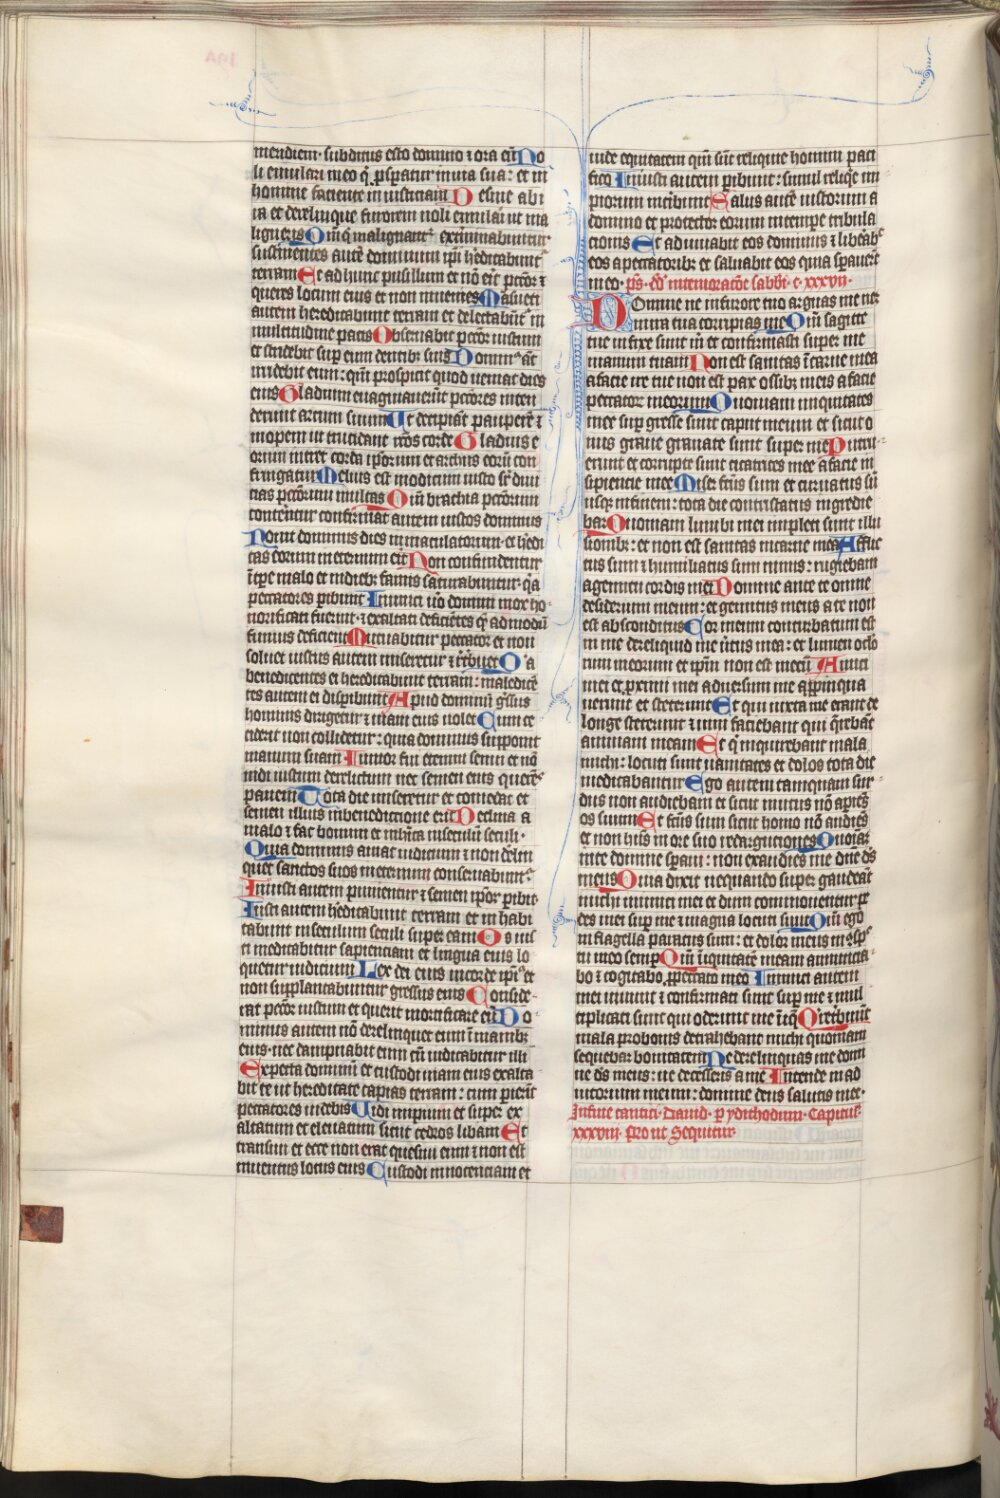 meridiem· subditus esto domino ⁊ ora eū No
li emulari in eo q̇ ꝓsperatur in uia sua: et in
homine faciente in iusticiam Desine ab i
ra et derelinque furorem noli emulari ut ma
ligneris Qm̄ q̇ malignant᷑ exterminabuntur·
sustinentes autē dominum ip̄i hereditabunt
terram Et adhuc pusillum et nō erit pccōr ⁊
queres locum eius et non inuenies Mansueti
autem hereditabunt terram et delectabūt᷑ in
multitudine pacis Obseruabit pccōr iustum
et stridebit sup eum dentibꝫ suis Dominꝰ aūt
irridebit eum: qm̄ prospicit quod ueniat dies
eius Gladium euaginauerūt pccōres inten
derunt arcum suum Ut decipiāt pauperē ⁊
inopem ut trucident rectos corde Gladius e
orum intret corda ipsorum et arcus eorū con
fringatur Melius est modicum iusto sr̄ diui
cias pccōrum multas Qm̄ brachia pccōrum
conterentur confirmat autem iustos dominus
Nouit dominus dies inmaculatorum· et hedi
tas eorum in eternum erit Non confundentur
ī tēpe malo et in diebꝫ famis saturabuntur· q̄a
peccatores ꝑibunt Inimici ūo domini mox ho
norificati fuerint· ⁊ exaltati deficiētes q̄ admodū
fumus deficient Mutuabitur peccator et non
soluet iustus autem miseretur ⁊ tribuet Qꝰa
benedicentes ei hereditabunt terram: maledicē
tes autem ei disperibunt Apud dominū gressus
hominis dirigetur ⁊ uiam eius uolet Cum ce
ciderit non collidetur: quia dominus supponit
manum suam Iunior fui etenim senui et nō
uidi iustum derelictum nec semen eius querēs
panem Tota die miseretur et comodat et
semen illius in benedictione erit Declina a
malo ⁊ fac bonum et inhita in seculū seculi·
Quia dominus amat iudicium ⁊ non derelin
quet sanctos suos in eternum conseruabunt᷑
Iniusti autem punientur ⁊ semen ipōr ꝑibit
Iusti autem hereditabunt terram et in habi
tabunt in seculum seculi super eam Os ius
ti meditabitur sapienciam et lingua eius lo
quetur iudicium Lex dei eius in corde ipīꝰ et
non supplantabuntur gressus eius Conside-
rat pccōr iustum et querit mortificare eū Do
minus autem nō derelinquet eum ī manibꝫ
eius· nec dampnabit eum cū iudicabitur illi
Expecta dominū et custodi uiam eius exalta
bit te ut hereditate capias terram: cum pierīt
peccatores uidebis Uidi impium et super ex
altatum et eleuatum sicut cedros libani Et
transiui et ecce non erat quesiui eum ⁊ non est
inuentus locus eius Custodi innocenciam et
uide equitatem qm̄ sūt reliquie homini paci
fico Iniusti autem ꝑibunt: simul reliqe im
piorum interibunt Salus autē iustorum a
domino et protector eorum in tempe tribula
cionis Et adiuuabit eos dominus ⁊ liberab᷑
eos a peccatoribꝫ et saluabit eos quia sperauerūt
in eo· ps· dd̄ in memoratōe sabbi· c· xxxvii·
Domine ne in furore tuo arguas me neꝫ
in ira tua corripias me Qm̄ sagitte
tue infixe sunt m̄ et confirmasti super me
manum tuam Non est sanitas ī carne mea
a facie ire tue non est pax ossibꝫ meis a facie
peccator᷑ meorum Quoniam iniquitates
mee sup gresse sunt caput meum et sicut o
nus graue grauate sunt super me Putru-
erunt et corrupte sunt cicatrices mee a facie in
sipiencie mee Miser fc̄us sum et curuatus sū
usqꝫ in finem: tota die contristatus ingredie
bar Quoniam lumbi mei impleti sunt illu
sionibꝫ: et non est sanitas in carne mea Afflic
tus sum ⁊ humiliatus sum nimis: rugiebam
a gemitu cordis mei Domine ante te omne
desiderium meum: et gemitus meus a te non
est absconditus Cor meum conturbatum est
in me dereliquid me uirtus mea: et lumen oclo
rum meorum et ipm̄ non est mecū Amici
mei et ꝓximi mei aduersum me appinqua
uerunt et steterunt Et qui iuxta me erant de
longe steterunt ⁊ uim faciebant qui querebāt
animam meam Et q̇ inquirebant mala
michi: locuti sunt uanitates et dolos tota die
meditabantur Ego autem tamquam sur-
dus non audiebam et sicut mutus nō apiēs
os suum Et factus sum sicut homo nō audiēs
et non hūs in ore suo redarguciones Quoiā ī
te domine sperau· : non exaudies me dn̄e ds̄
meus Quia dixi: nequando super gaudeāt
michi inimici mei et dum commouentur pe
des mei sup me ⁊ magna locuti sunt Qm̄ ego
in flagella paratus sum: et dolor meus in 9sp̄c
tu meo semꝑ Qm̄ īiquitatē meam annuncia-
bo ⁊ cogitabo ꝓ peccato meo Inimici autem
mei uiuunt ⁊ confirmati sunt sup me ⁊ mul
tiplicati sunt qui oderunt me īiqꝫ Qi retribuūt
mala pro bonis detrahebant michi quoniam
sequebar bonitatem Ne derelinquas me domi
ne ds̄ meus: ne decesseris a me Intende in ad
iutorium meum: domine deus salutis mee·
In fine cantici· Dauid· ꝑ ydithodum· Capitulꝰ
xxxviii· pro ut Sequitur·